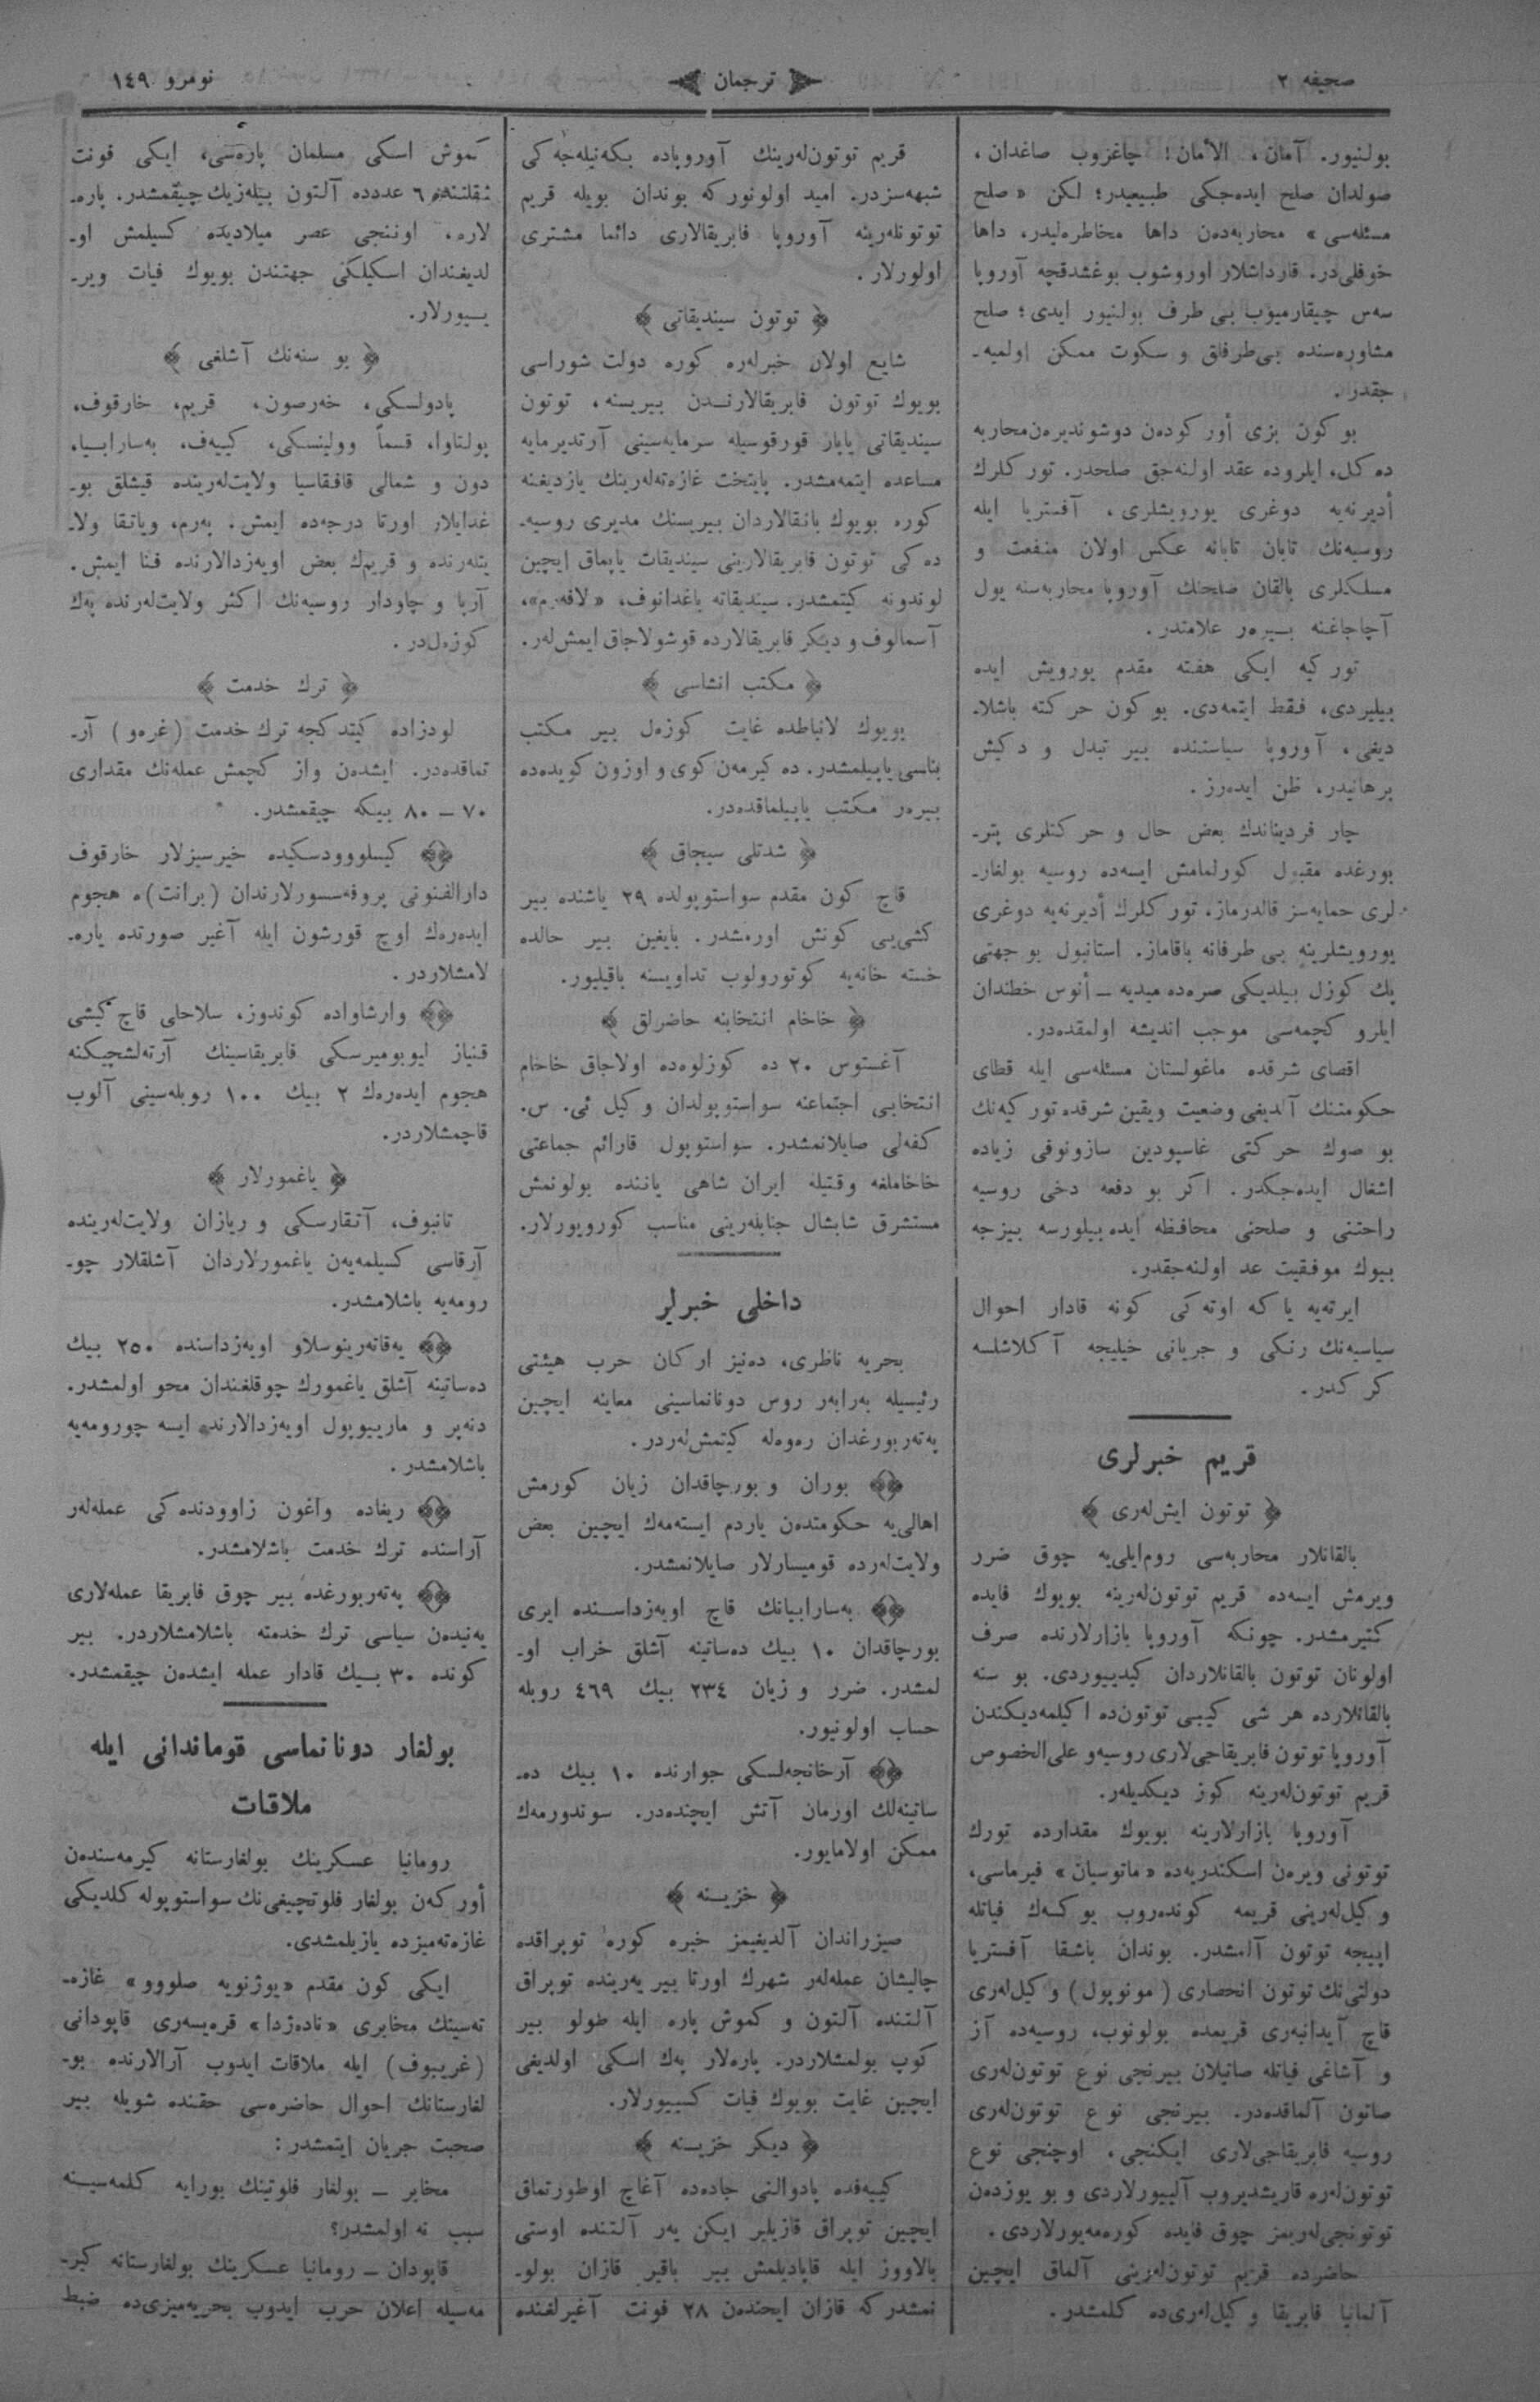 صحیفه ٢
ترجمان
نومرو ١٤٩
بولنیور. آمان، الأمان! چاغزوب صاغدان،
صولدان صلح ایده‌جکی طبیعیدر؛ لکن « صلح
مسئله‌سی » محاربه‌دن داها مخاطره‌لیدر، داها
خوفلی‌در. قارداشلار اوروشوب بوغشدقچه آوروپا
سه‌س چیقارمیوب بی طرف بولنیور ایدی؛ صلح
مشاوره‌سنده بی‌طرفلق و سکوت ممکن اولمیه-
جقدر.
بو کون بزی أورکوده‌ن دوشوندیره‌ن محاربه
ده‌کل، ایلروده عقد اولنه‌جق صلحدر. تورکلرك
أدیرنه‌یه دوغری یورویشلری، آفستریا ایله
روسیه‌نك تابان تابانه عکس اولان منفعت و
مسلکلری بالقان صلحنك آوروپا محاربه‌سنه یول
آچاجاغنه بـیره‌ر علامتدر.
تورکیه ایکی هفته مقدم یورویش ایده
بیلیردی، فقط ایتمه‌دی. بو کون حرکته باشلا-
دیغی، آوروپا سیاستنده بیر تبدل و دکیش
برهانیدر، ظن ایده‌رز.
چار فردیناندك بعض حال و حرکتلری پتر-
بورغده مقبول کورلمامش ایسه‌ده روسیه بولغار-
لری حمایه‌سز قالدرماز، تورکلرك أدیرنه‌یه دوغری
یورویشلرینه بی طرفانه باقاماز. استانبول بو جهتی
پك کوزل بیلدیکی صره‌ده میدیه ــ أنوس خطندان
ایلرو کچمه‌سی موجب اندیشه اولمقده‌در.
اقصای شرقده ماغولستان مسئله‌سی ایله قطای
حکومتنك آلدیغی وضعیت ویقین شرقده تورکیه‌نك
بو صوك حرکتی غاسپودین سازونوفی زیاده
اشغال ایده‌جکدر. اکر بو دفعه دخی روسیه
راحتنی و صلحنی محافظه ایده بیلورسه بیزجه
بیوك موفقیت عد اولنه‌جقدر.
ایرته‌یه یاکه اوته‌کی کونه قادار احوال
سیاسیه‌نك رنکی و جریانی خیلیجه آکلاشلسه
کرکدر.
قریم خبرلری
﴿ توتون ایش‌له‌ری ﴾
بالقانلار محاربه‌سی روم‌ایلی‌یه چوق ضرر
ویرمش ایسه‌ده قریم توتون‌له‌رینه بویوك فایده
کتیرمشدر. چونکه آوروپا بازارلارنده صرف
اولونان توتون بالقانلاردان کیدییوردی. بو سنه
بالقانلارده هر شی کیبی توتون‌ده اکیلمه‌دیکندن
آوروپا توتون فابریقاجی‌لاری روسیه‌و علی‌الخصوص
قریم توتون‌له‌رینه کوز دیکدیله‌ر.
آوروپا بازارلارینه بویوك مقدارده تورك
توتونی ویره‌ن اسکندریه‌ده « ماتوسیان » فیرماسی،
وکیل‌له‌رینی قریمه کونده‌روب یوکسه‌ك فیاتله
ایبیجه توتون آلمشدر. بوندان باشقا آفستریا
دولتی‌نك توتون انحصاری (مونوپول) وکیل‌له‌ری
قاچ آیدانبه‌ری قریمده بولونوب، روسیه‌ده آز
و آشاغی فیاتله صاتیلان بیرنجی نوع توتون‌له‌ری
صاتون آلماقده‌در. بیرنجی نوع توتون‌له‌ری
روسیه فابریقاجی‌لاری ایکنجی، اوچنجی نوع
توتون‌له‌ره قاریشدیروب آلییورلاردی و بو یوزده‌ن
توتونجی‌له‌ریمز چوق فایده کوره‌مه‌یورلاردی.
حاضرده قریم توتون‌له‌رینی آلماق ایچین
آلمانیا فابریقا وکیل‌له‌ری‌ده کلمشدر.
قریم توتون‌له‌رینك آوروپاده بکه‌نیله‌جه‌کی
شبهه‌سزدر. امید اولونورکه بوندان بویله قریم
توتونله‌رینه آوروپا فابریقالاری دائما مشتری
اولورلار.
﴿ توتون سیندیقاتی ﴾
شایع اولان خبرله‌ره کوره دولت شوراسی
بویوك توتون فابریقالارنـدن بیریسنه، توتون
سیندیقاتی یاپار قورقوسیله سرمایه‌سینی آرتدیرمایه
مساعده ایتمه‌مشدر. پایتخت غازه‌ته‌له‌رینك یازدیغنه
کوره بویوك بانقالاردان بیریسنك مدیری روسیه-
ده‌کی توتون فابریقالارینی سیندیقات یاپماق ایچین
لوندونه کیتمشدر. سیندیقاته باغدانوف، « لافه‌رم»،
آسمالوف و دیکر فابریقالارده قوشولاجاق ایمش‌له‌ر.
﴿ مکتب انشاسی ﴾
بویوك لانباطده غایت کوزه‌ل بیر مکتب
بناسی یاپیلمشدر. ده‌کیرمه‌ن کوی و اوزون کویده‌ده
بیره‌ر مکتب یاپیلماقده‌در.
﴿ شدتلی سیجاق ﴾
قاچ کون مقدم سواستوپولده ٢٩ یاشنده بیر
کشی‌یی کونش اورمشدر. بایغین بیر حالده
خسته خانه‌یه کوتورولوب تداویسنه باقیلیور.
﴿ خاخام انتخابنه حاضرلق ﴾
آغستوس ٢٠ ده کوزلوه‌ده اولاجاق خاخام
انتخابی اجتماعنه سواستوپولدان وکیل ئی. س.
کفه‌لی صایلانمشدر. سواستوپول قارائم جماعتی
خاخاملغه وقتیله ایران شاهی یاننده بولونمش
مستشرق شابشال جنابله‌رینی مناسب کورویورلار.
داخلی خبرلر
بحریه ناظری، ده‌نیز ارکان حرب هیئتی
رئیسیله به‌رابه‌ر روس دونانماسینی معاینه ایچین
په‌ته‌ربورغدان ره‌وه‌له کیتمش‌له‌ردر.
بوران و بورچاقدان زیان کورمش
اهالی‌یه حکومتده‌ن یاردم ایسته‌مه‌ك ایچین بعض
ولایت‌له‌رده قومیسارلار صایلانمشدر.
به‌سارابیانك قاچ اویه‌زداسـنده ایری
بورچاقدان ١٠ بیك ده‌ساتینه آشلق خراب او-
لمشدر. ضرر و زیان ٢٣٤ بیك ٤٦٩ روبله
حساب اولونیور.
آرخانجه‌لسکی جوارنده ١٠ بیك ده-
ساتینه‌لك اورمان آتش ایچنده‌در. سوندورمه‌ك
ممکن اولامایور.
﴿ خزینه ﴾
صیزراندان آلدیغیمز خبره کوره توپراقده
چالیشان عمله‌له‌ر شهرك اورتا بیر یه‌رینده توپراق
آلتنده آلتون و کموش پاره ایله طولو بیر
کوپ بولمشلاردر. پاره‌لار په‌ك اسکی اولدیغی
ایچین غایت بویوك فیات کسییورلار.
﴿ دیکر خزینه ﴾
کییه‌فده پادوالنی جاده‌ده آغاج اوطورتماق
ایچین توپراق قازیلیر ایکن یه‌ر آلتنده اوستی
بالاووز ایله قاپادیلمش بیر باقیر قازان بولو-
نمشدر که قازان ایچنده‌ن ٢٨ فونت آغیرلغنده
کموش اسکی مسلمان پاره‌سی، ایکی فونت
ثقلتنده ٦ عددده آلتون بیله‌زیك چیقمشدر. پاره-
لاره، اوننجی عصر میلادیده کسیلمش او-
لدیغندان اسکیلکی جهتندن بویوك فیات ویر-
یـیورلار.
﴿ بو سنه‌نك آشلغی ﴾
پادولسکی، خه‌رصون، قریم، خارقوف،
پولتاوا، قسماً وولینسکی، کییه‌ف، به‌سارابـیا،
دون و شمالی قافقاسیا ولایت‌له‌رینده قیشلق بو-
غدایلار اورتا درجه‌ده ایمش. په‌رم، ویاتقا ولا-
یتله‌رنده و قریم‌ك بعض اویه‌زدالارنده فنا ایمش.
آرپا و چاودار روسیه‌نك اکثر ولایت‌له‌رنده په‌ك
کوزه‌ل‌در.
﴿ ترك خدمت ﴾
لودزاده کیتدکجه ترك خدمت (غره‌و) آر-
تماقده‌در. ایشده‌ن واز کچمش عمله‌نك مقداری
٧٠ ــ ٨٠ بیکه چیقمشدر.
کیسلووودسکیده خیرسیزلار خارقوف
دارالفنونی پروفه‌سسورلارندان (برانت)ه هجوم
ایده‌ره‌ك اوچ قورشون ایله آغیر صورتده یاره-
لامشلاردر.
وارشاواده کوندوز، سلاحلی قاچ کیشی
قنیاز لیوبومیرسکی فابریقاسینك آرته‌لشچیکنه
هجوم ایده‌ره‌ك ٢ بیك ١٠٠ روبله‌سینی آلوب
قاچمشلاردر.
﴿ یاغمورلار ﴾
تانبوف، آتقارسکی و ریازان ولایت‌له‌رینده
آرقاسی کسیلمه‌یه‌ن یاغمورلاردان آشلقلار چو-
رومه‌یه باشلامشدر.
یه‌قاته‌رینوسلاو اویه‌زداسنده ٢٥٠ بیك
ده‌ساتینه آشلق یاغمورك چوقلغندان محو اولمشدر.
دنه‌پر و ماریبوپول اویه‌زدالارنده ایسه چورومه‌یه
باشلامشدر.
ریغاده واغون زاوودنده‌کی عمله‌له‌ر
آراسنده ترك خدمت باشلامشدر.
په‌ته‌ربورغده بیر چوق فابریقا عمله‌لاری
یه‌نیده‌ن سیاسی ترك خدمته باشلامشلاردر. بیر
کونده ٣٠ بـیك قادار عمله ایشده‌ن چیقمشدر.
بولغار دونانماسی قوماندانی ایله
ملاقات
رومانیا عسکرینك بولغارستانه کیرمه‌سنده‌ن
أورکه‌ن بولغار فلوتچیغی‌نك سواستوپوله کلدیکی
غازه‌ته‌میزده یازیلمشدی.
ایکی کون مقدم « یوژنویه صلووو » غازه-
ته‌سینك مخابری « ناده‌ژدا » قره‌یسه‌ری قاپودانی
(غریبوف) ایله ملاقات ایدوب آرالارنده بو-
لغارستانك احوال حاضره‌سی حقنده شویله بیر
صحبت جریان ایتمشدر:
مخابر ــ بولغار فلوتینك بورایه کلمه‌سینه
سبب نه اولمشدر؟
قاپودان ــ رومانیا عسکرینك بولغارستانه کیر-
مه‌سیله اعلان حرب ایدوب بحریه‌میزی‌ده ضبط